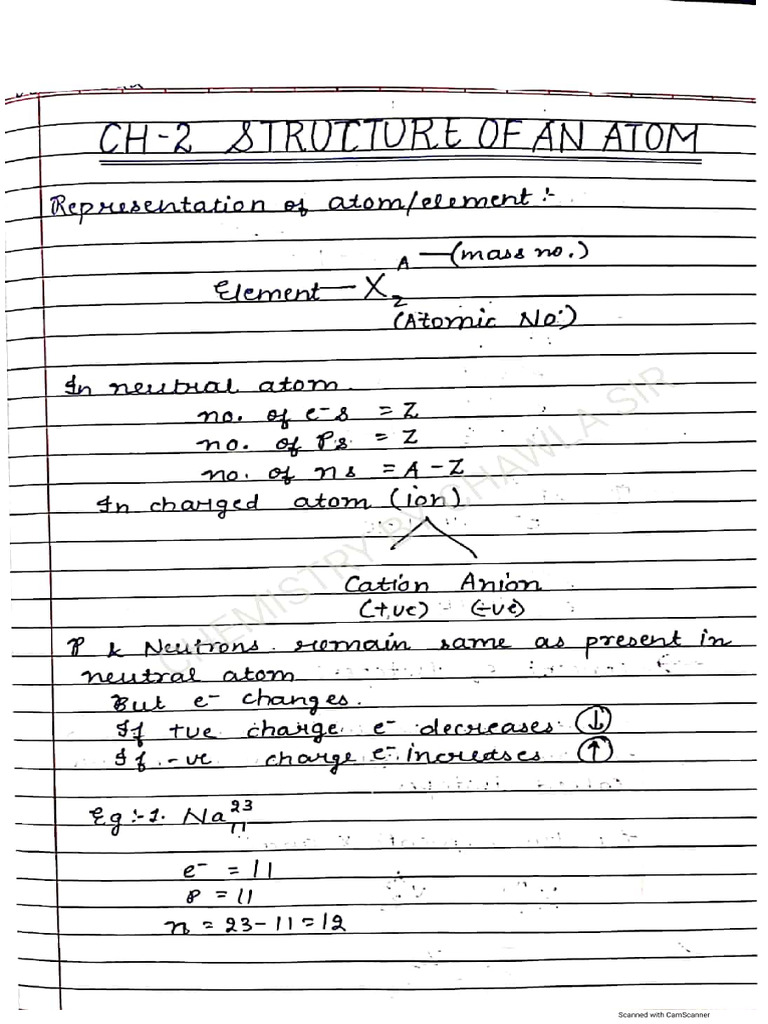 CH-2 STRUCTURE OF AN ATOM
Representation of atom/element :-
A —(mass no.)
Element — X
Z
(Atomic No:)
In neutral atom
no. of e-s = Z
no. of Ps = Z
no. of ns = A - Z
In charged atom (ion)
Cation Anion
(+ve) (-ve)
P & Neutrons remain same as present in
neutral atom
But e- changes.
If +ve charge e- decreases (↓)
If -ve charge e- increases (↑)
Eg :- 1. Na 23
11
e- = 11
P = 11
n = 23 - 11 = 12
CHEMISTRY BY CHAWLA SIR
Scanned with CamScanner